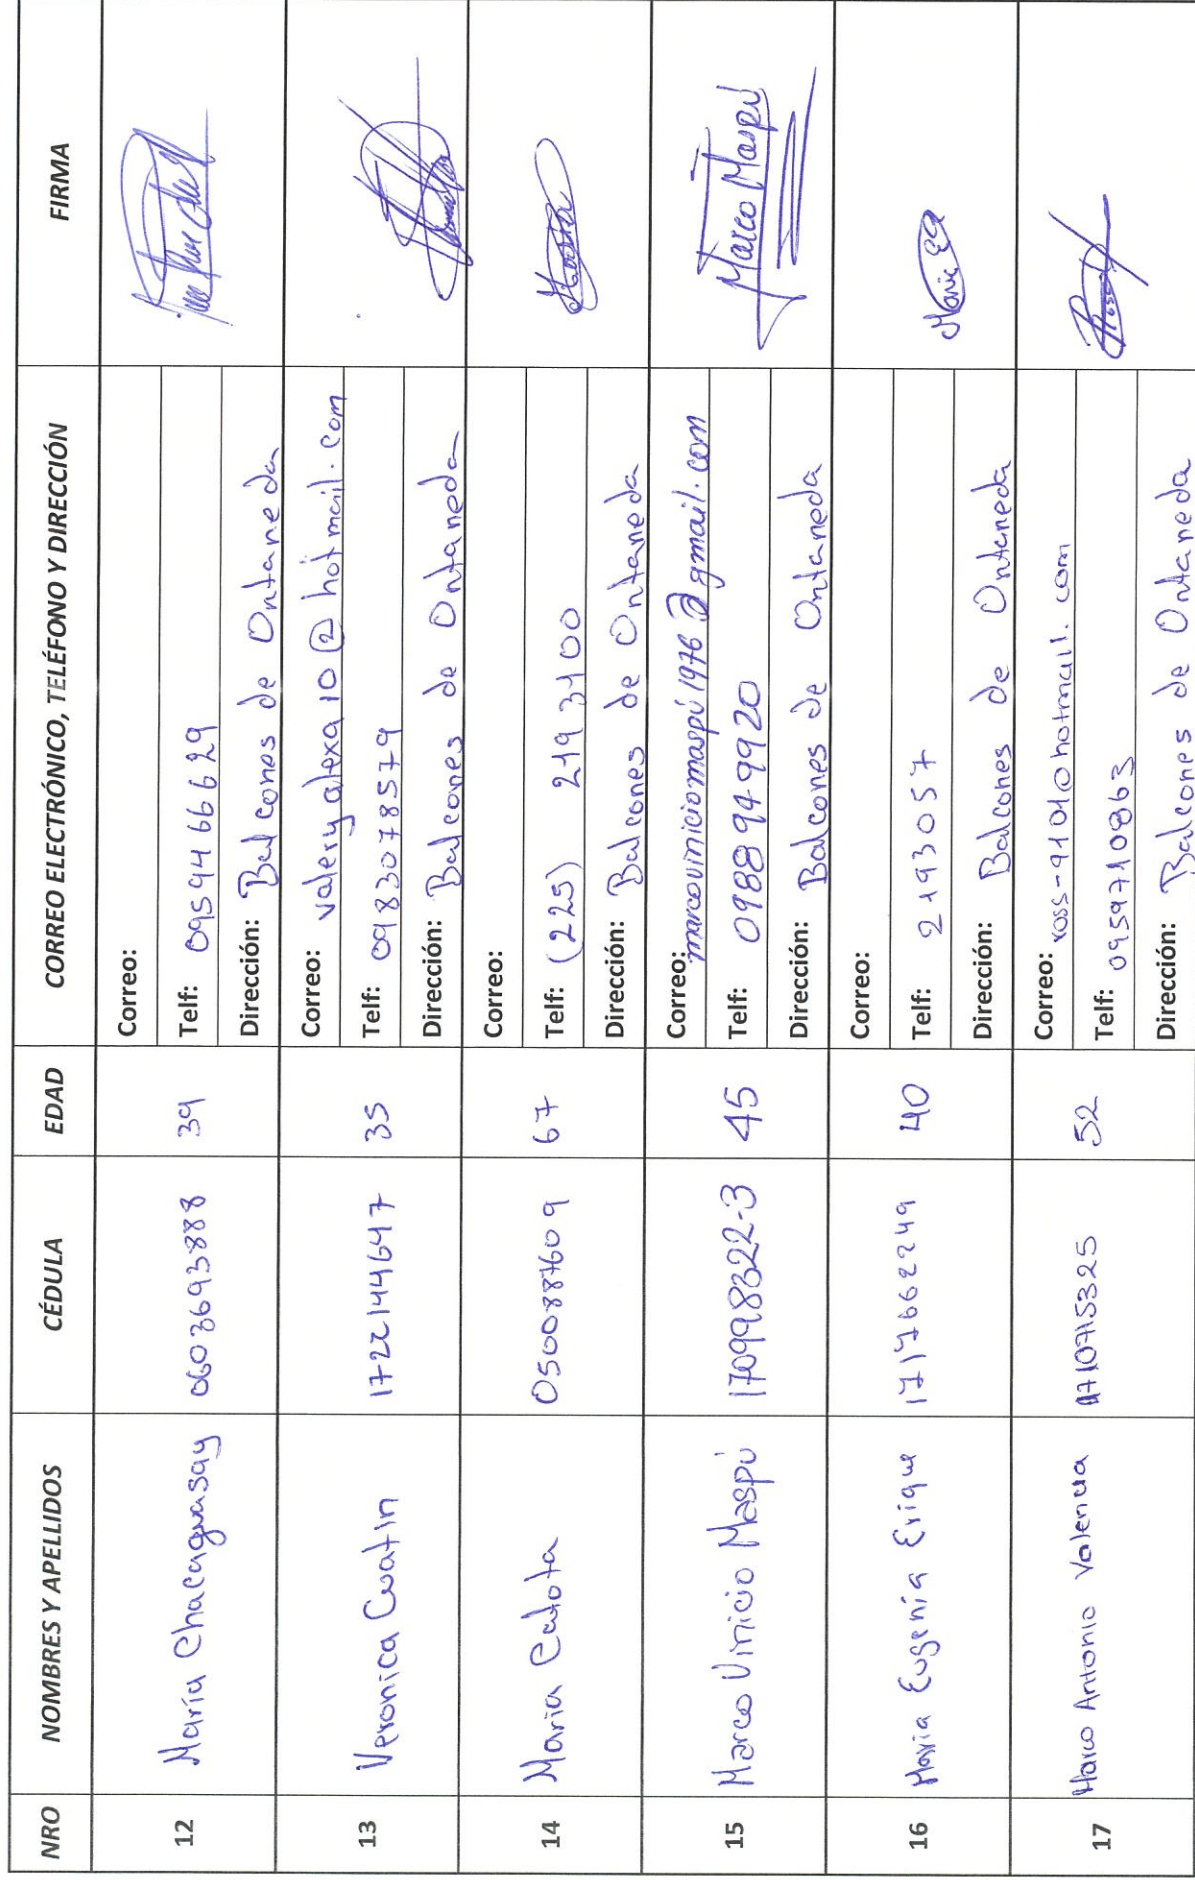 NRO NOMBRES Y APELLIDOS CÉDULA EDAD CORREO ELECTRÓNICO, TELÉFONO Y DIRECCIÓN FIRMA
12 María Chacaguasay 0603693888 39
Correo:
Telf: 0959466629
Dirección: Balcones de Ontaneda
13 Veronica Cuatin 1722144647 35
Correo: valeryalexa10@hotmail.com
Telf: 0983078579
Dirección: Balcones de Ontaneda
14 Maria Catota 0500887609 67
Correo:
Telf: (225) 2193100
Dirección: Balcones de Ontaneda
15 Marco Vinicio Maspú 170998322-3 45
Correo: marcoviniciomaspú1976@gmail.com
Telf: 0988949920
Dirección: Balcones de Ontaneda
Marco Maspú
16 Maria Eugenía Erique 1717662249 40
Correo:
Telf: 2193057
Dirección: Balcones de Ontaneda
Maria EG
17 Marco Antonio Valencia 1710715325 52
Correo: ross-9101@hotmail.com
Telf: 0959710863
Dirección: Balcones de Ontaneda